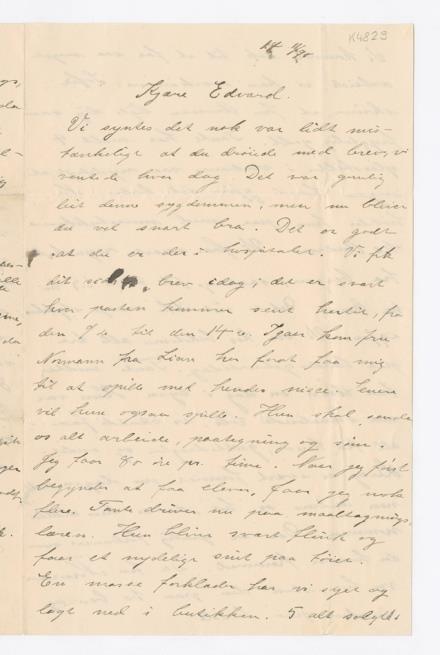 K4829
14 4/90
Kjære Edvard.
Vi syntes det nok var lidt mis-
tænkeligt at du drøiede med brev, vi
ventede hver dag. Det var gruelig
leit denne sygdommen, men nu bliver
du vel snart bra. Det er godt
at du er der i hospitalet. Vi fik
dit brev idag; det er svart
hvor posten kommer sent hertil, fra
den 7 de til den 14 de. Igaar kom fru
Normann fra Lian her forat faa mig
til at spille med hendes niece. Senere
vil hun ogsaa spille. Hun skal sende
os alt arbeide, paategning og søm.
Jeg faar 80 øre pr. time. Naar jeg først
begynder at faa elever, faar jeg nok
flere. Tante driver nu paa maaltagnings
læren. Hun bliver svart flink og
faar et nydeligt snit paa tøier.
En masse forklæder har vi syet og
lagt ned i butikken. 5 alt solgt